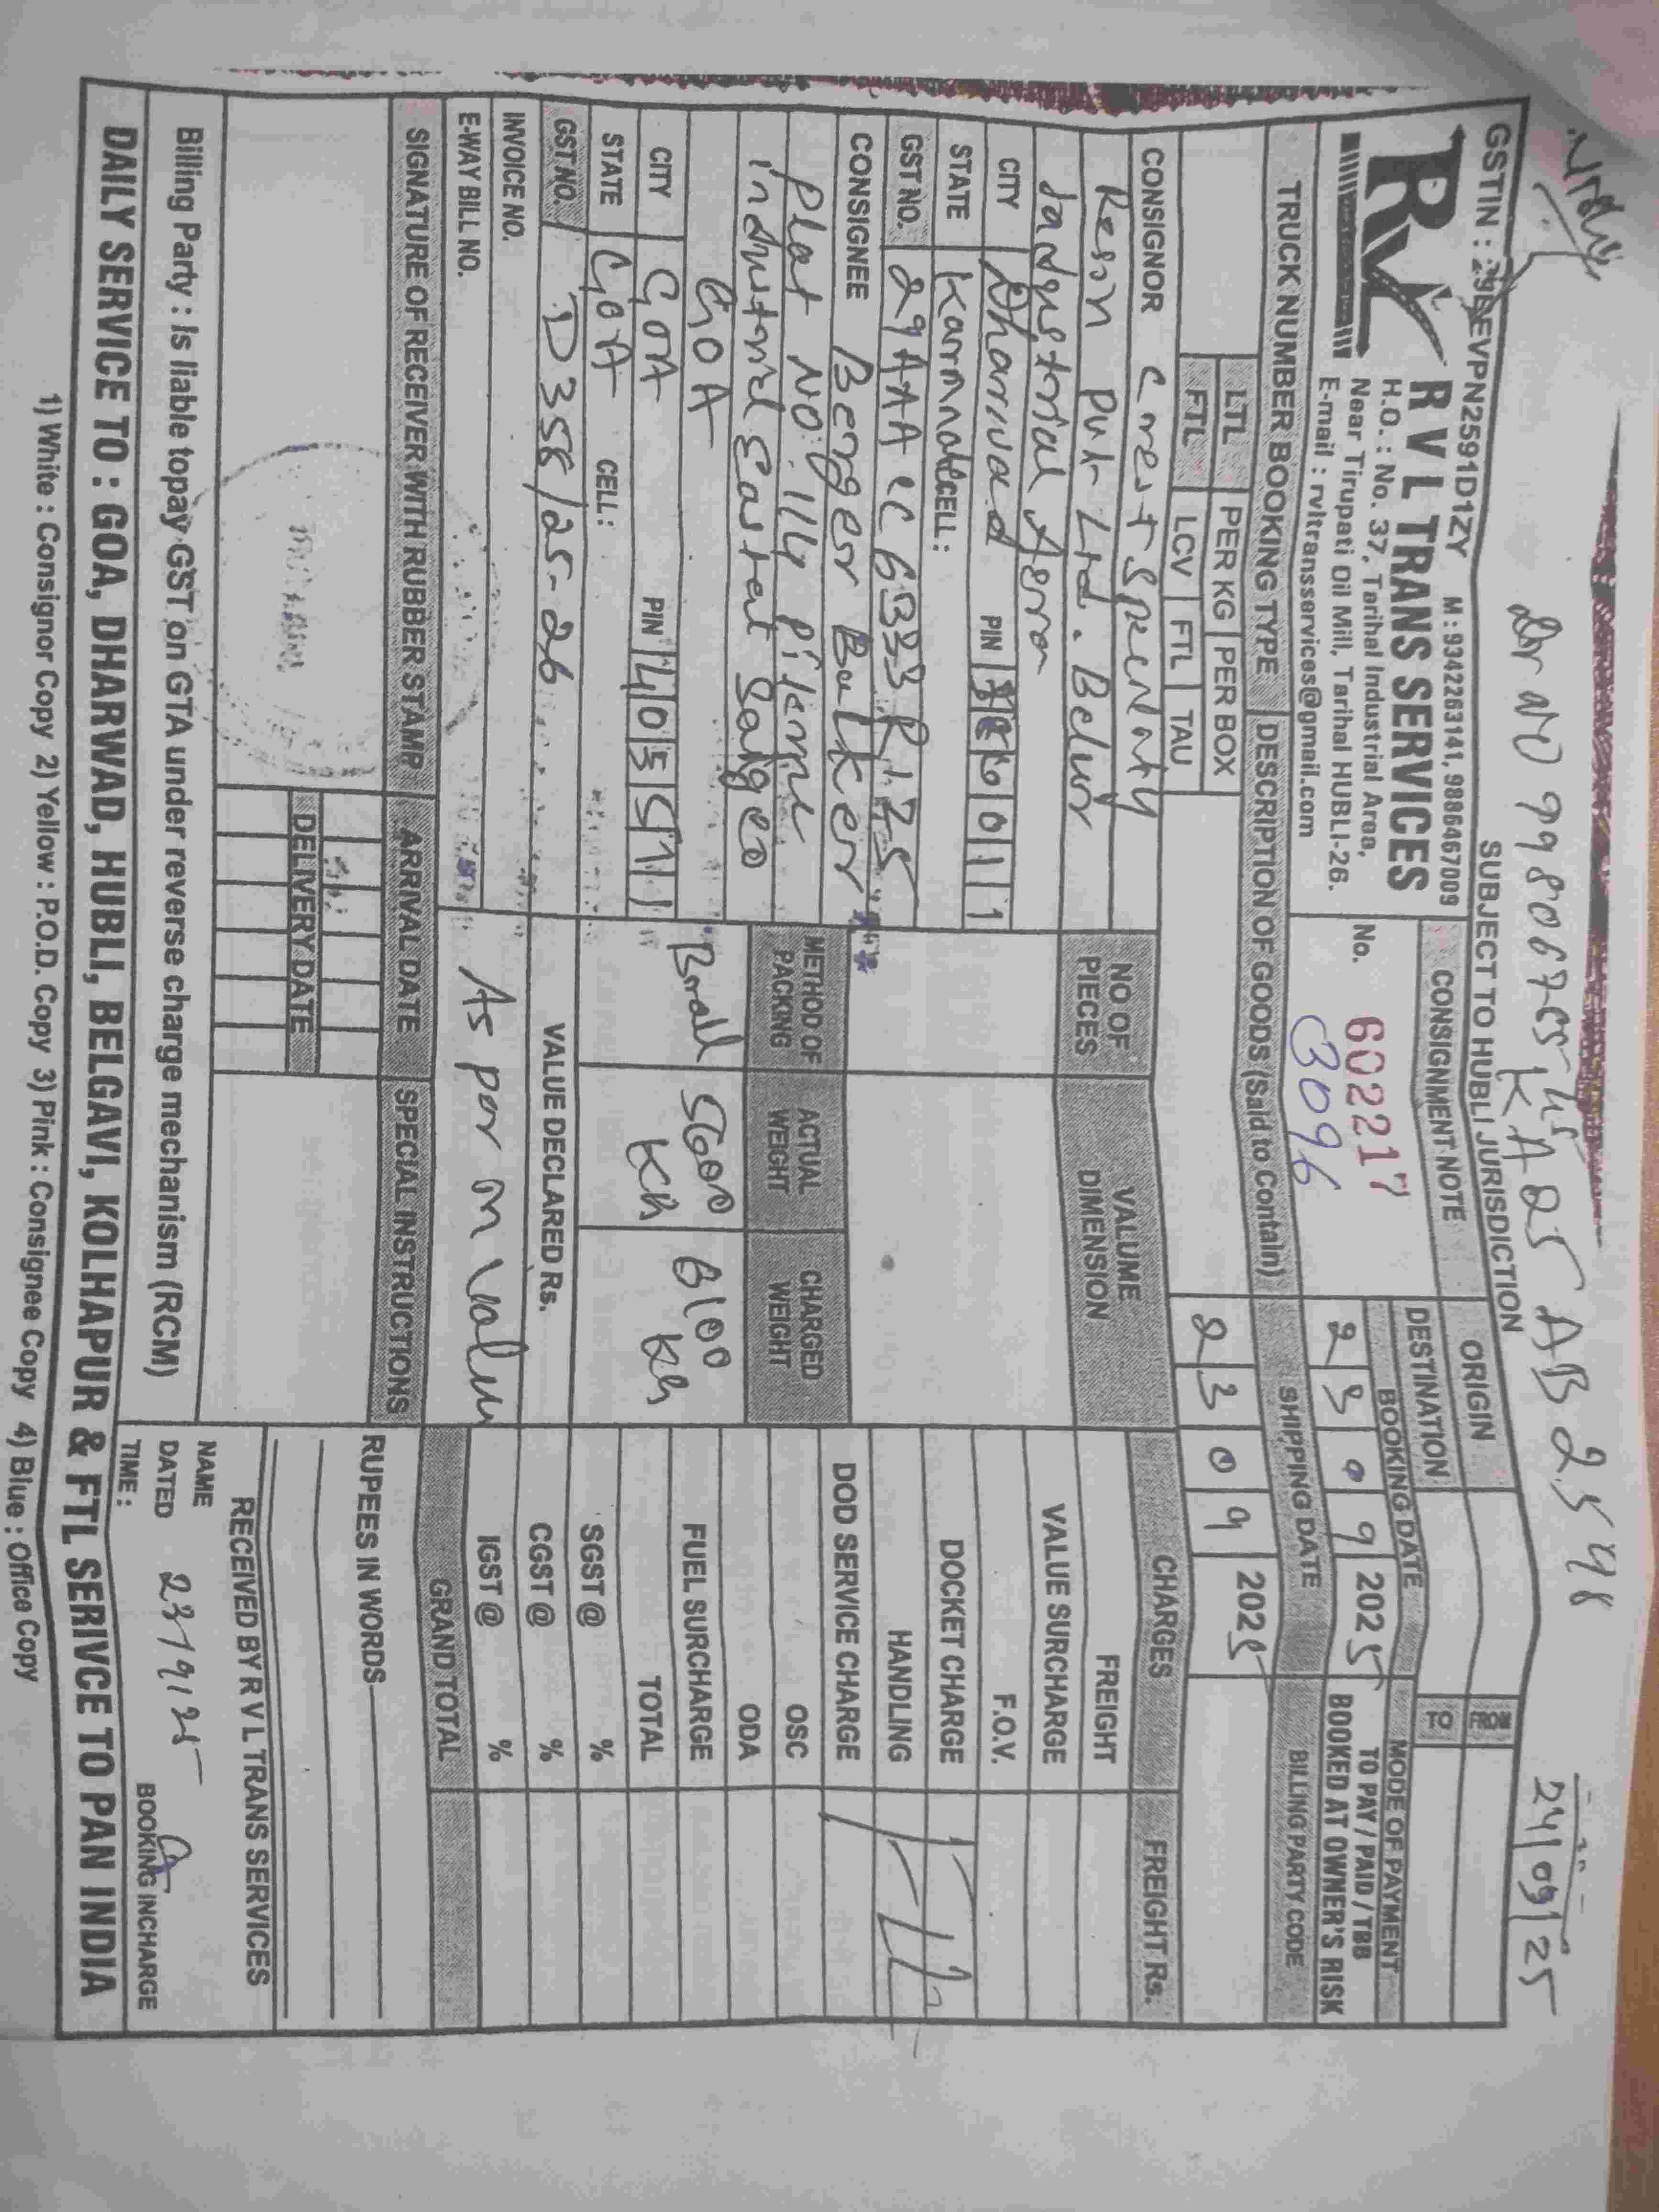 Dr NO 9980675
KA25 AB 2598
24/09/25
GSTIN : 29AEVPN2591D1ZY M : 9342263141, 9886467009
SUBJECT TO HUBLI JURISDICTION
RVL
R V L TRANS SERVICES
H.O. : No. 37, Tarihal Industrial Area,
Near Tirupati Oil Mill, Tarihal HUBLI-26.
E-mail : rvltransservices@gmail.com
CONSIGNMENT NOTE
No. 602217
3096
ORIGIN
FROM
DESTINATION
TO
BOOKING DATE
23 09 2025
MODE OF PAYMENT
TO PAY / PAID / TBB
BOOKED AT OWNER'S RISK
TRUCK NUMBER BOOKING TYPE DESCRIPTION OF GOODS (Said to Contain) SHIPPING DATE BILLING PARTY CODE
LTL PER KG PER BOX
FTL LCV FTL TAU
23 09 2025
CONSIGNOR Crest Speciality
Resin Pvt Ltd. Belur
Industrial Area
CITY Dharwad PIN
STATE Karnnatc CELL:
GST NO. 29AAACC6333R1Z5
CONSIGNEE Berger Bulker
Plot NO. 114 Pilerne
industrial Eastat Saigeo
GOA
CITY GOA PIN 403511
STATE GOA CELL:
GST NO. D358/25-26
INVOICE NO.
E-WAY BILL NO.
NO OF PIECES
VALUME DIMENSION
METHOD OF PACKING
ACTUAL WEIGHT
CHARGED WEIGHT
5600 KG
6100 KG
VALUE DECLARED Rs.
As per in value
CHARGES FREIGHT Rs.
FREIGHT
VALUE SURCHARGE
F.O.V.
DOCKET CHARGE
HANDLING
DOD SERVICE CHARGE
OSC
ODA
FUEL SURCHARGE
TOTAL
SGST @ %
CGST @ %
IGST @ %
GRAND TOTAL
SIGNATURE OF RECEIVER WITH RUBBER STAMP
ARRIVAL DATE
SPECIAL INSTRUCTIONS
DELIVERY DATE
RUPEES IN WORDS
RECEIVED BY R V L TRANS SERVICES
NAME
DATED 23/9/25
TIME :
BOOKING INCHARGE
Billing Party : Is liable topay GST on GTA under reverse charge mechanism (RCM)
DAILY SERVICE TO : GOA, DHARWAD, HUBLI, BELGAVI, KOLHAPUR & FTL SERIVCE TO PAN INDIA
1) White : Consignor Copy 2) Yellow : P.O.D. Copy 3) Pink : Consignee Copy 4) Blue : Office Copy